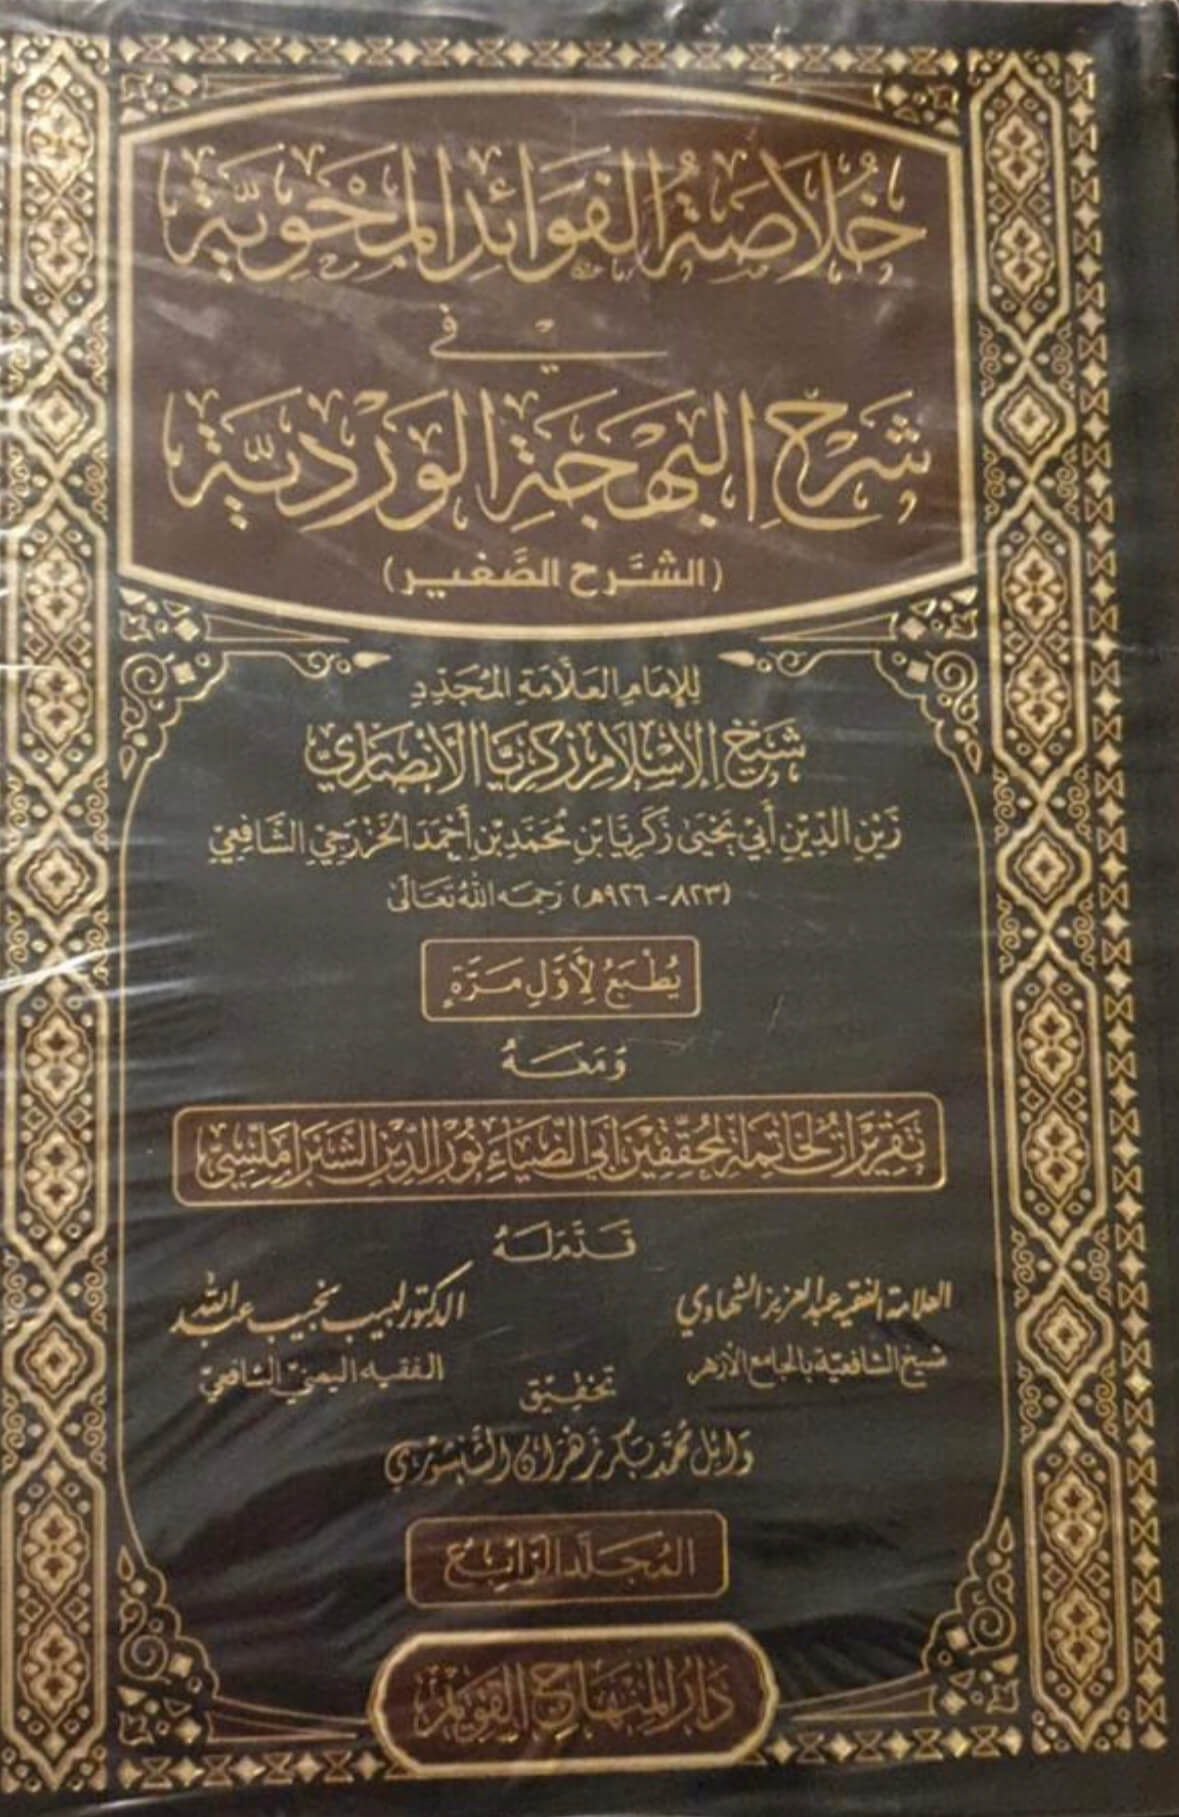 خُلَاصَةُ الْفَوَائِدِ الْمَحْوِيَّةِ
فِي
شَرْحِ الْبَهْجَةِ الْوَرْدِيَّةِ
(الشَّرْحِ الصَّغِيرِ)
لِلْإِمَامِ الْعَلَّامَةِ الْمُجَدِّدِ
شَيْخِ الْإِسْلَامِ زَكَرِيَّا الْأَنْصَارِي
زَيْنِ الدِّينِ أَبِي يَحْيَى زَكَرِيَّا بْنِ مُحَمَّدِ بْنِ أَحْمَدَ الْخَزْرَجِيِّ الشَّافِعِيِّ
(٨٢٣ - ٩٢٦هـ) رَحِمَهُ اللهُ تَعَالَى
يُطْبَعُ لِأَوَّلِ مَرَّةٍ
وَمَعَهُ
تَقْرِيرَاتُ خَاتِمَةِ الْمُحَقِّقِينَ أَبِي الضِّيَاءِ نُورِ الدِّينِ الشَّبْرَامَلِّسِيِّ
قَدَّمَ لَهُ
العلامة الفقيه عبد العزيز الشهاوي
شيخ الشافعية بالجامع الأزهر
الدكتور لبيب نجيب عبد الله
الفقيه اليمني الشافعي
تَحْقِيق
وَائِل مُحَمَّد بَكْر زَهْرَان الشَّنْشَوْرِي
الْمُجَلَّدُ الرَّابِعُ
دَارُ الْمِنْهَاجِ الْقَوِيمِ